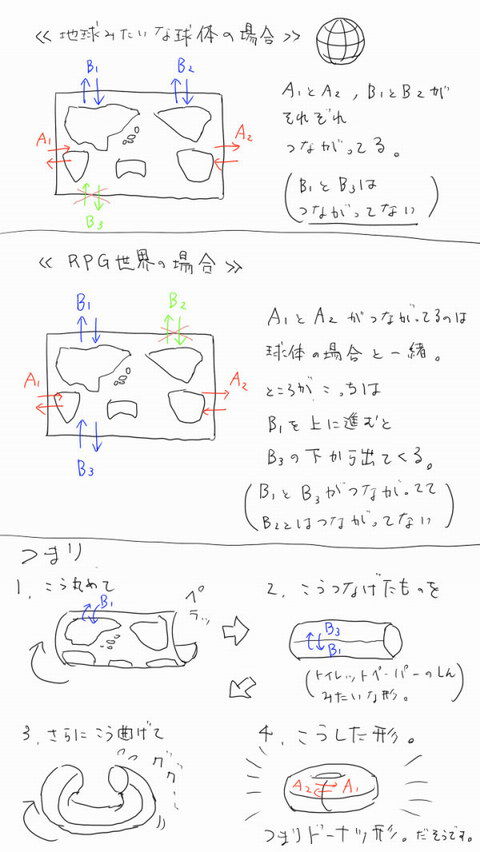 ≪地球みたいな球体の場合≫
B1
B2
A1
A2
B3
A1とA2,B1とB2が
それぞれ
つながってる。
(B1とB3は
つながってない)
≪RPG世界の場合≫
B1
B2
A1
A2
B3
A1とA2がつながってるのは
球体の場合と一緒。
ところがこっちは
B1を上に進むと
B3の下から出てくる。
(B1とB3がつながってて
B2とはつながってない)
つまり
1.こう丸めて
B1
ペラッ
2.こうつなげたものを
B3
B1
(トイレットペーパーのしん
みたいな形。)
3.さらにこう曲げて
グググー
4.こうした形。
A2
A1
つまりドーナツ形。だそうです。